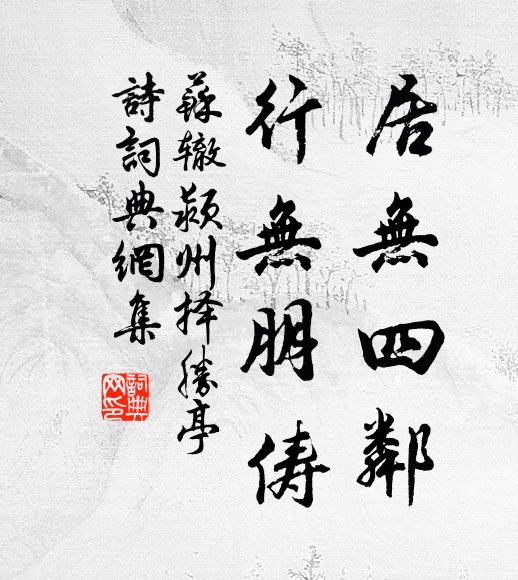 居無四鄰
行無朋儔
蘇辙颍州择勝亭
詩詞典網集
詞典網印